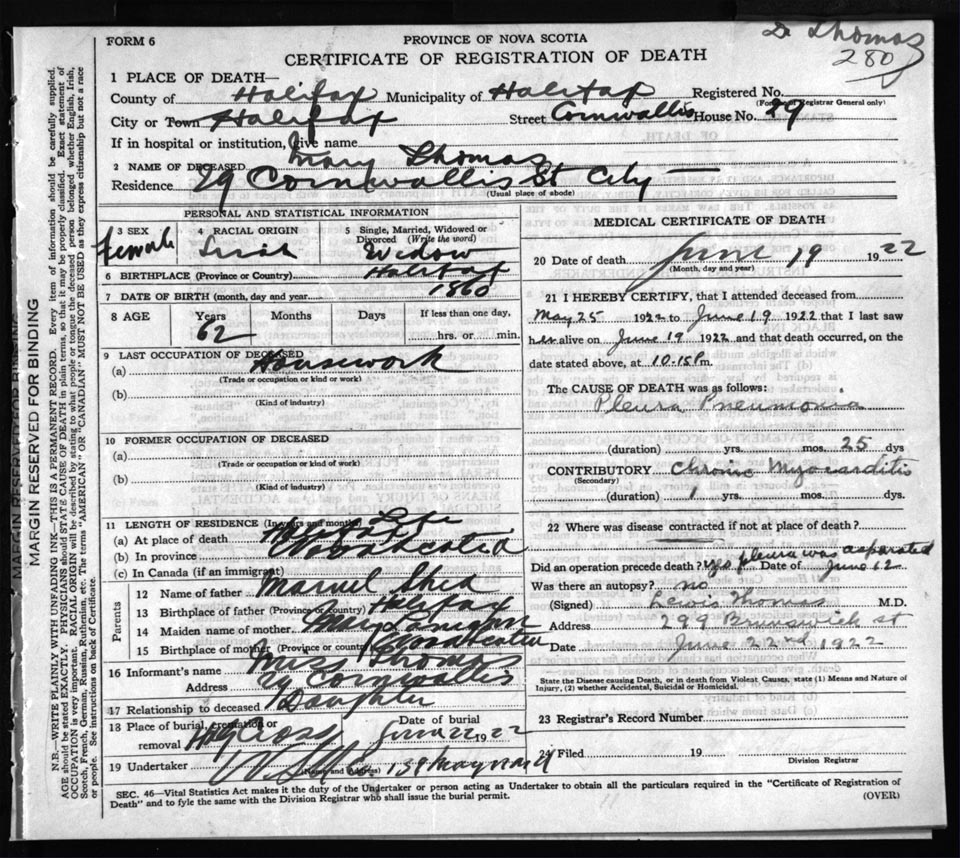 Dr Thomas
280
FORM 6
PROVINCE OF NOVA SCOTIA
CERTIFICATE OF REGISTRATION OF DEATH
1 PLACE OF DEATH—
County of Halifax Municipality of Halifax Registered No.
(For use of Registrar General only)
City or Town Halifax Street Cornwallis House No. 29
If in hospital or institution, give name
2 NAME OF DECEASED Mary Thomas
Residence 29 Cornwallis St City
(Usual place of abode)
PERSONAL AND STATISTICAL INFORMATION
3 SEX Female
4 RACIAL ORIGIN Irish
5 Single, Married, Widowed or Divorced (Write the word) Widow
6 BIRTHPLACE (Province or Country) Halifax
7 DATE OF BIRTH (month, day and year) 1860
8 AGE Years 62 Months Days If less than one day,
hrs. or min.
9 LAST OCCUPATION OF DECEASED
(a) Housework
(Trade or occupation or kind or work)
(b)
(Kind of industry)
10 FORMER OCCUPATION OF DECEASED
(a)
(Trade or occupation or kind of work)
(b)
(Kind of industry)
11 LENGTH OF RESIDENCE (In years and months)
(a) At place of death Life
(b) In province
(c) In Canada (if an immigrant)
Parents
12 Name of father Shea
13 Birthplace of father (Province or country) Halifax
14 Maiden name of mother Mary
15 Birthplace of mother (Province or country)
16 Informant's name Miss Thomas
Address 29 Cornwallis
17 Relationship to deceased Daughter
18 Place of burial, cremation or removal Holy Cross Date of burial June 22 1922
19 Undertaker 139 Maynard
(Name and address)
MEDICAL CERTIFICATE OF DEATH
20 Date of death June 19 1922
(Month, day and year)
21 I HEREBY CERTIFY, that I attended deceased from
May 25 1922 to June 19 1922 that I last saw
her alive on June 19 1922 and that death occurred, on the
date stated above, at 10.15 P.m.
The CAUSE OF DEATH was as follows:
Pleura Pneumonia
(duration) yrs. mos. 25 dys
CONTRIBUTORY Chronic Myocarditis
(Secondary)
(duration) 1 yrs. mos. dys.
22 Where was disease contracted if not at place of death?
Did an operation precede death? yes pleura was aspirated Date of June 12
Was there an autopsy? no
(Signed) Lewis Thomas M.D.
Address 299 Brunswick st
Date June 22nd 1922
State the Disease causing Death, or in death from Violent Causes, state (1) Means and Nature of
Injury, (2) whether Accidental, Suicidal or Homicidal.
23 Registrar's Record Number
24 Filed 19
Division Registrar
SEC. 46—Vital Statistics Act makes it the duty of the Undertaker or person acting as Undertaker to obtain all the particulars required in the "Certificate of Registration of
Death" and to fyle the same with the Division Registrar who shall issue the burial permit.
(OVER)
MARGIN RESERVED FOR BINDING
N.B.—WRITE PLAINLY WITH UNFADING INK—THIS IS A PERMANENT RECORD. Every item of information should be carefully supplied.
AGE should be stated EXACTLY. PHYSICIANS should STATE CAUSE OF DEATH in plain terms, so that it may be properly classified. Exact statement of
OCCUPATION is very important. RACIAL ORIGIN will be described by stating to what people or tongue the deceased person belonged whether English, Irish,
Scotch, French, German, Russian, Ruthenian, etc. The terms "AMERICAN" OR "CANADIAN" MUST NOT BE USED as they express citizenship but not a race
or people. See instructions on back of Certificate.